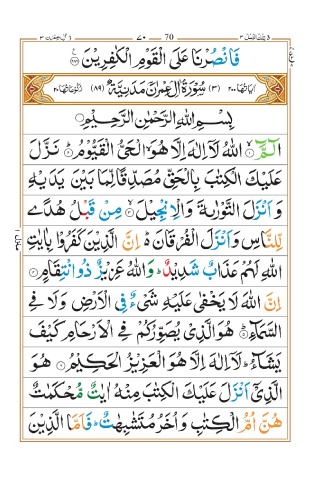 ٧٠ 70
فَانْصُرْنَا عَلَى الْقَوْمِ الْكٰفِرِيْنَ ۟
اٰيَاتُهَا ٢٠٠ (٣) سُوْرَةُ اٰلِ عِمْرٰنَ مَدَنِيَّةٌ (٨٩) رُكُوْعَاتُهَا ٢٠
بِسْمِ اللّٰهِ الرَّحْمٰنِ الرَّحِيْمِ
الٓمَّٓ ۙ۝١ اللّٰهُ لَاۤ اِلٰهَ اِلَّا هُوَ ۙ الْحَيُّ الْقَيُّوْمُ ؕ۝٢ نَزَّلَ
عَلَيْكَ الْكِتٰبَ بِالْحَقِّ مُصَدِّقًا لِّمَا بَيْنَ يَدَيْهِ
وَاَنْزَلَ التَّوْرٰىةَ وَالْاِنْجِيْلَ ۙ۝٣ مِنْ قَبْلُ هُدًى
لِّلنَّاسِ وَاَنْزَلَ الْفُرْقَانَ ؕ۬ اِنَّ الَّذِيْنَ كَفَرُوْا بِاٰيٰتِ
اللّٰهِ لَهُمْ عَذَابٌ شَدِيْدٌ ؕ وَاللّٰهُ عَزِيْزٌ ذُو انْتِقَامٍ ؕ۝٤
اِنَّ اللّٰهَ لَا يَخْفٰى عَلَيْهِ شَيْءٌ فِي الْاَرْضِ وَلَا فِي
السَّمَآءِ ؕ۝٥ هُوَ الَّذِيْ يُصَوِّرُكُمْ فِي الْاَرْحَامِ كَيْفَ
يَشَآءُ ؕ لَاۤ اِلٰهَ اِلَّا هُوَ الْعَزِيْزُ الْحَكِيْمُ ۝٦ هُوَ
الَّذِيْۤ اَنْزَلَ عَلَيْكَ الْكِتٰبَ مِنْهُ اٰيٰتٌ مُّحْكَمٰتٌ
هُنَّ اُمُّ الْكِتٰبِ وَاُخَرُ مُتَشٰبِهٰتٌ ؕ فَاَمَّا الَّذِيْنَ